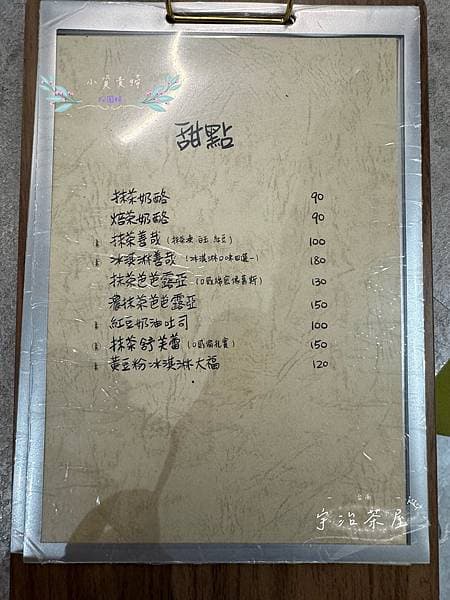 小資貴婦
校園線
甜點
抹茶奶酪 90
焙茶奶酪 90
抹茶善哉 (抹茶凍 白玉 紅豆) 100
冰淇淋善哉 (冰淇淋口味四選一) 180
抹茶芭芭露亞 (口感綿密像慕斯) 130
濃抹茶芭芭露亞 150
紅豆奶油吐司 100
抹茶舒芙蕾 (口感偏扎實) 150
黃豆粉冰淇淋大福 120
台南
宇治茶屋